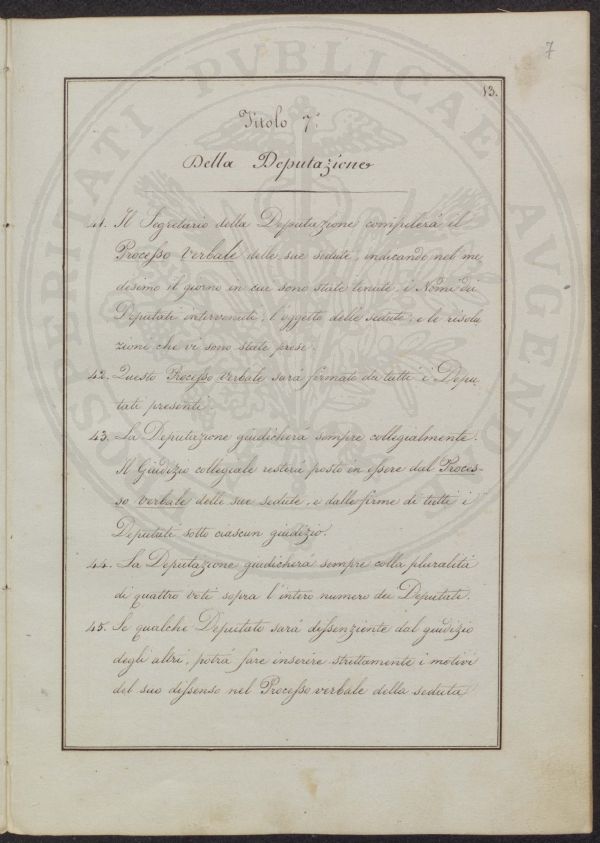 7
13.
Titolo 7.°
Della Deputazione
41. Il Segretario della Deputazione compilerà il
Processo verbale delle sue sedute, indicando nel me
desimo il giorno in cui sono state tenute, i Nomi dei
Deputati intervenuti, l'oggetto delle sedute, e le risolu
zioni che vi sono state prese.
42. Questo Processo verbale sarà firmato da tutti i Depu
tati presenti.
43. La Deputazione giudicherà sempre collegialmente.
Il Giudizio collegiale resterà posto in essere dal Proces-
so verbale delle sue sedute, e dalle firme di tutti i
Deputati sotto ciascun giudizio.
44. La Deputazione giudicherà sempre colla pluralità
di quattro voti sopra l'intero numero dei Deputati.
45. Se qualche Deputato sarà dissenziente dal giudizio
degli altri, potrà fare inserire strettamente i motivi
del suo dissenso nel Processo verbale della seduta
PROSPERITATI PVBLICAE AVGENDAE